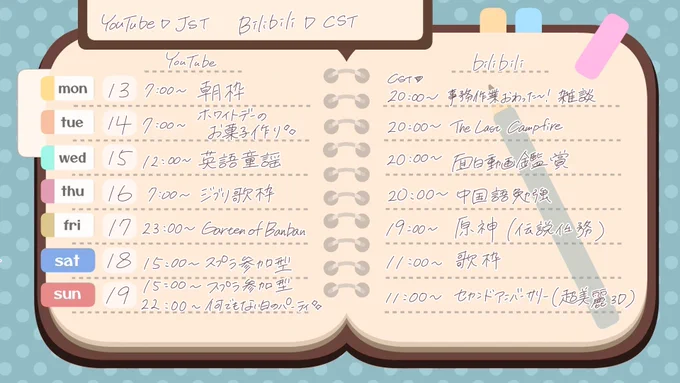 YouTube ▷ JST Bilibili ▷ CST
YouTube
mon 13 7:00~ 朝枠
tue 14 7:00~ ホワイトデーの
お菓子作り
wed 15 12:00~ 英語童謡
thu 16 7:00~ ジブリ歌枠
fri 17 23:00~ Garten of Banban
sat 18 15:00~ スプラ参加型
sun 19 15:00~ スプラ参加型
22:00~ 何でもない日のパーティ
bilibili
CST♥
20:00~ 事務作業おわった~! 雑談
20:00~ The Last Campfire
20:00~ 面白動画鑑賞
20:00~ 中国語勉強
19:00~ 原神 (伝説任務)
11:00~ 歌枠
11:00~ セカンドアンバーサリー (超美麗3D)